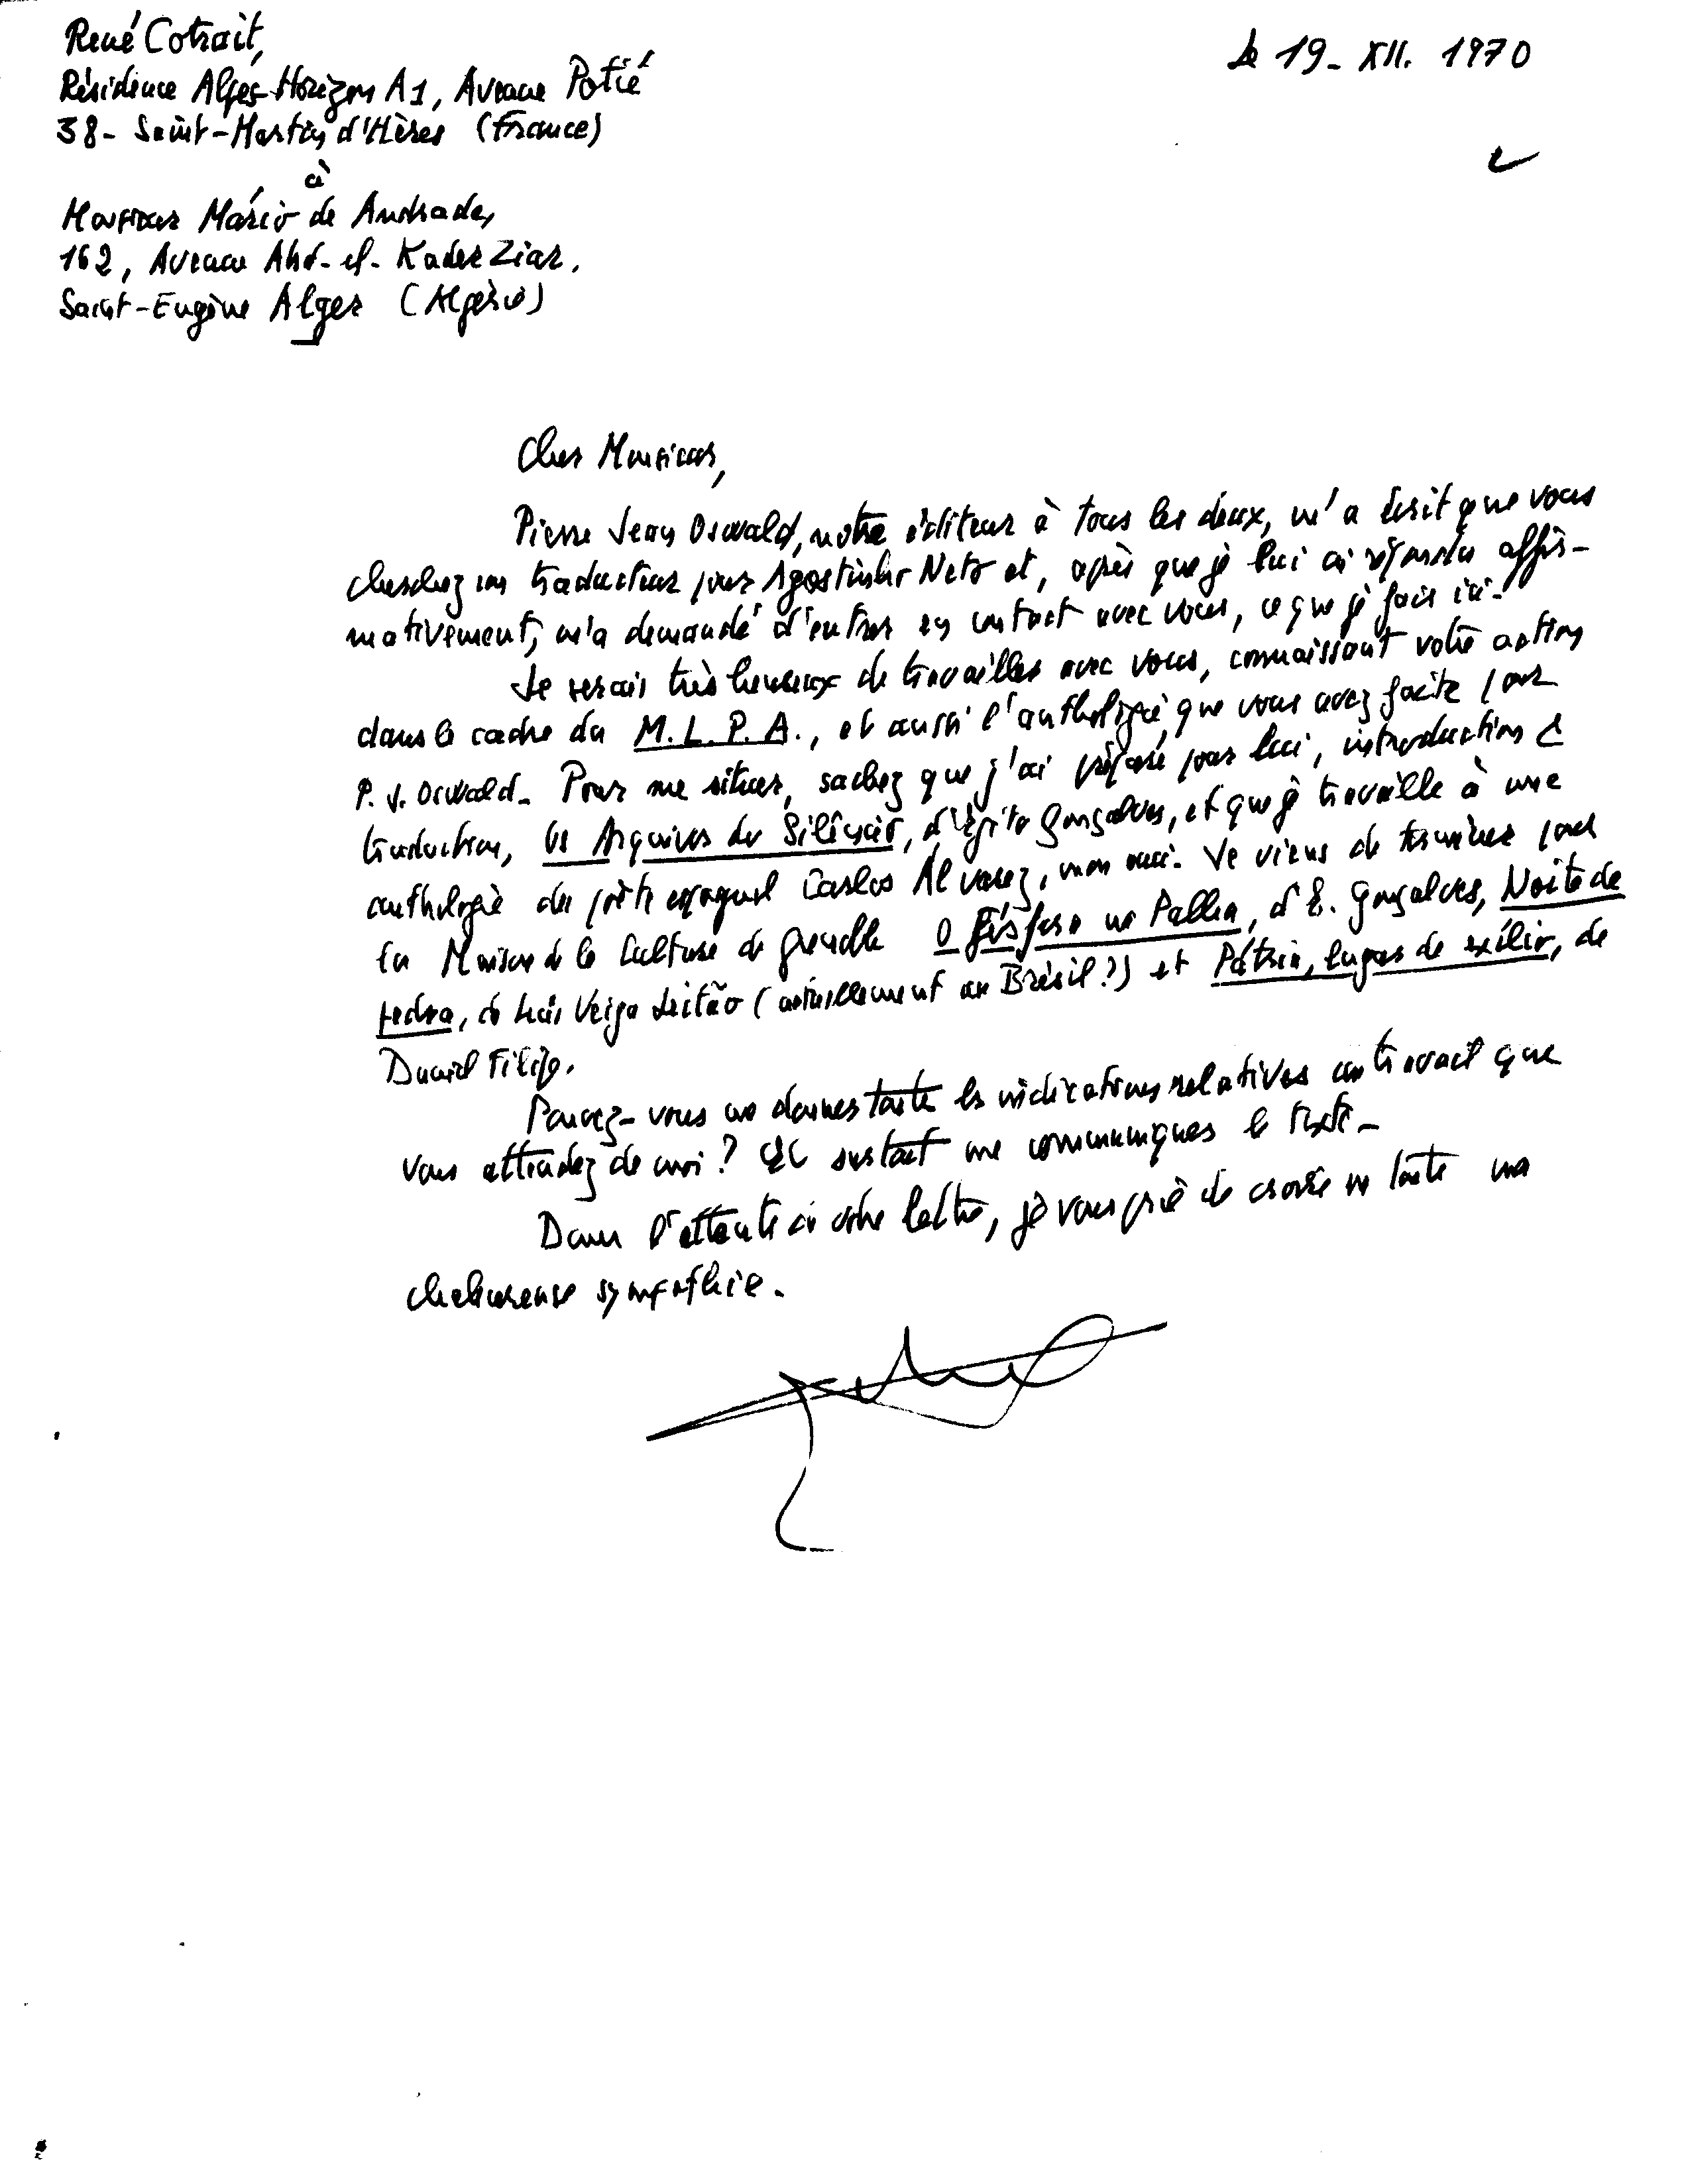 René Cotrait,
Résidence Alpes-Horizon A1, Avenue Potié
38- Saint-Martin d'Hères (France)
à
Monsieur Mário de Andrade,
162, Avenue Abd-el-Kader Ziar.
Saint-Eugène Alger (Algérie)
le 19- XII. 1970
Cher Monsieur,
Pierre Jean Oswald, notre éditeur à tous les deux, m'a écrit que vous
cherchez un traducteur pour Agostinho Neto et, après que je lui ai répondu affir-
mativement, m'a demandé d'entrer en contact avec vous, ce que je fais ici.
Je serais très heureux de travailler avec vous, connaissant votre action
dans le cadre du M.L.P.A., et aussi l'anthologie que vous avez faite pour
P. J. Oswald. Pour me situer, sachez que j'ai préparé pour lui, introduction &
traduction, Os Arquivos do Silêncio, d'Egito Gonçalves, et que je travaille à une
anthologie du poète espagnol Carlos Alvarez, mon ami. Je viens de terminer pour
la Maison de la Culture de Grenoble O Fósforo na Palha, d'E. Gonçalves, Noite de
pedra, de Luís Veiga Leitão (actuellement au Brésil?) et Pátria, lugar de exílio, de
Daniel Filipe.
Pouvez-vous me donner toute les indications relatives au travail que
vous attendez de moi? Et surtout me communiquer le texte.
Dans l'attente de votre lettre, je vous prie de croire en toute ma
chaleureuse sympathie.